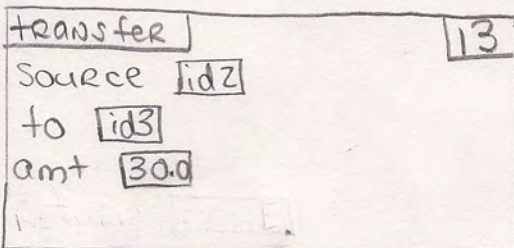 transfer 13
Source id2
to id3
amt 30.0